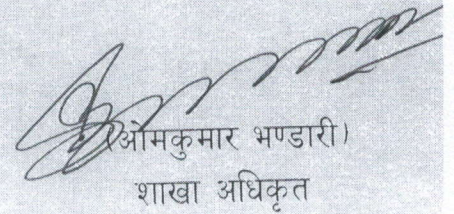 (ओमकुमार भण्डारी)
शाखा अधिकृत